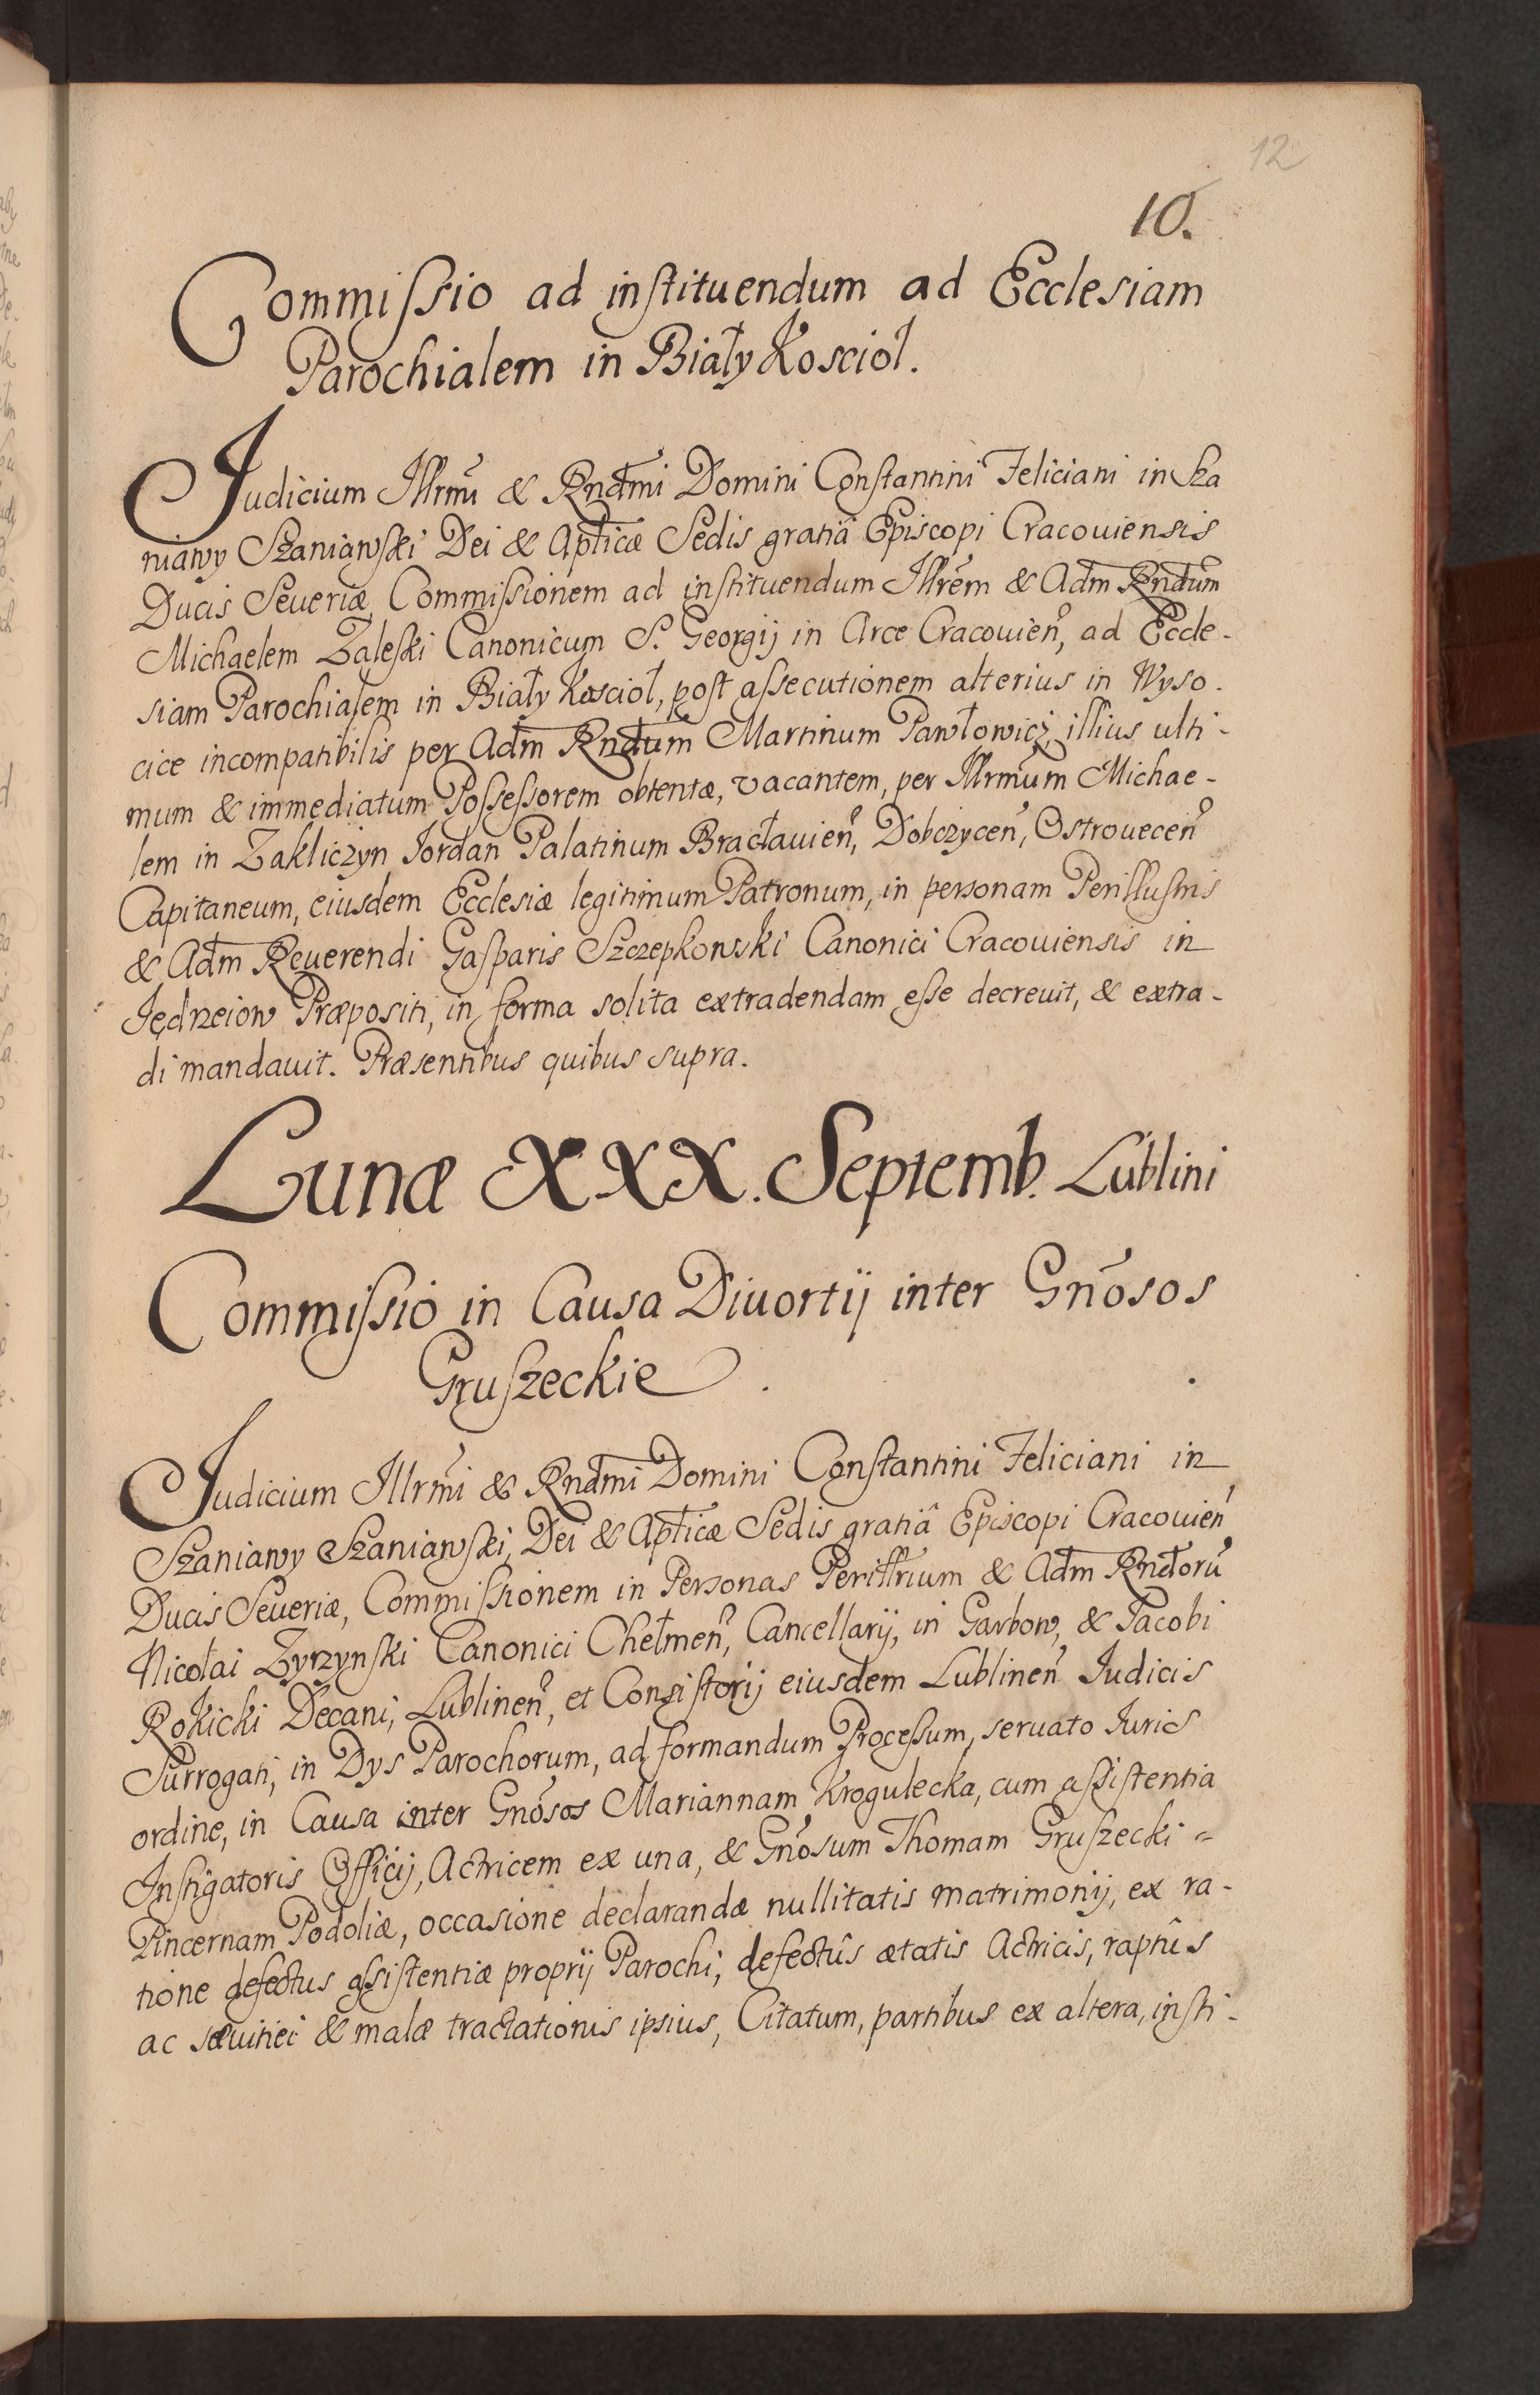 12
10.
Commissio ad instituendum ad Ecclesiam
Parochialem in Biały Koscioł.
Judicium Illrmi & Rndmi Domini Constantini Feliciani in Sza
niawy Szaniawski Dei & Aplicæ Sedis gratiâ Episcopi Cracouiensis
Ducis Seueriæ, Commissionem ad instituendum Illrem & Adm Rndum
Michaelem Zaleski Canonicum S. Georgij in Arce Cracouien, ad Eccle-
siam Parochialem in Biały Koscioł, post assecutionem alterius in Wyso-
cice incompatibilis per Adm Rndum Martinum Pawłowicz, illius ulti-
mum & immediatum Possessorem obtentæ, vacantem, per Illrmum Michae-
lem in Zakliczyn Jordan Palatinum Bracłauien, Dobczycen, Ostrouecen
Capitaneum, eiusdem Ecclesiæ legitimum Patronum, in personam Perillustris
& Adm Reuerendi Gasparis Szczepkowski Canonici Cracouiensis in
Jędrzeiow Præpositi, in forma solita extradendam esse decreuit, & extra-
di mandauit. Præsentibus quibus supra.
Lunæ XXX. Septemb. Lublini
Commissio in Causa Diuortij inter Gnosos
Gruszeckie.
Judicium Illrmi & Rndmi Domini Constantini Feliciani in
Szaniawy Szaniawski, Dei & Aplicæ Sedis gratiâ Episcopi Cracouien
Ducis Seueriæ, Commissionem in Personas Perillrium & Adm Rndoru
Nicolai Zyrzynski Canonici Chełmen, Cancellarij, in Garbow, & Jacobi
Rokicki Decani, Lublinen, et Consistorij eiusdem Lublinen Judicis
Surrogati, in Dys Parochorum, ad formandum Processum, seruato Juris
ordine, in Causa inter Gnosos Mariannam Krogulecka, cum assistentia
Instigatoris Officij, Actricem ex una, & Gnosum Thomam Gruszecki =
Pincernam Podoliæ, occasione declarandæ nullitatis matrimonij, ex ra-
tione defectus assistentiæ proprij Parochi, defectûs ætatis Actricis, raptûs
ac sæuitiei & malæ tractationis ipsius, Citatum, partibus ex altera, insti-